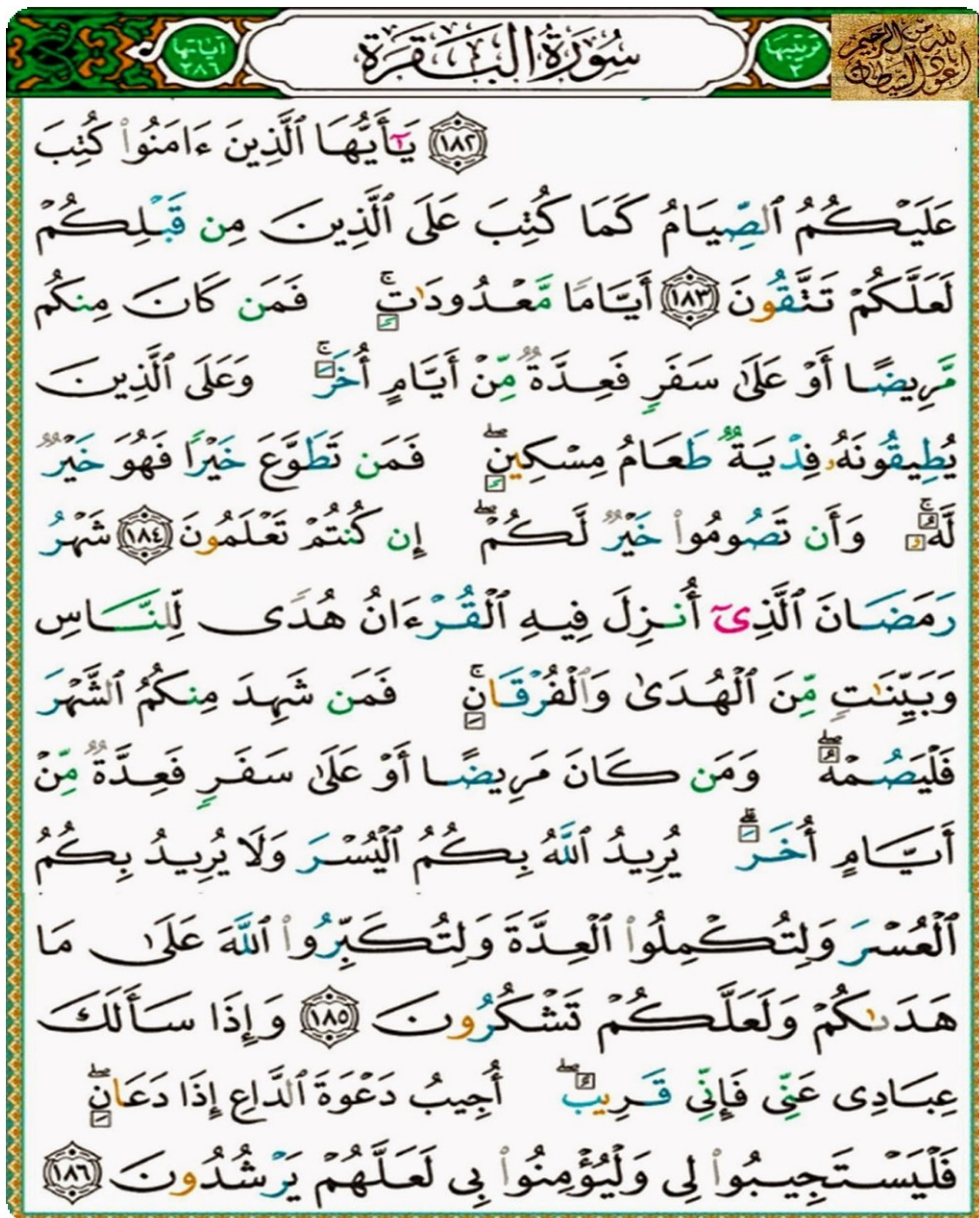 ترتيبها ٢
سُورَةُ البَقَرَةِ
آياتها ٢٨٦
أعوذ بالله من الشيطان الرجيم
﴿١٨٢﴾ يَٰٓأَيُّهَا ٱلَّذِينَ ءَامَنُوا۟ كُتِبَ
عَلَيْكُمُ ٱلصِّيَامُ كَمَا كُتِبَ عَلَى ٱلَّذِينَ مِن قَبْلِكُمْ
لَعَلَّكُمْ تَتَّقُونَ ﴿١٨٣﴾ أَيَّامًا مَّعْدُودَٰتٍ ۚ فَمَن كَانَ مِنكُم
مَّرِيضًا أَوْ عَلَىٰ سَفَرٍ فَعِدَّةٌ مِّنْ أَيَّامٍ أُخَرَ ۚ وَعَلَى ٱلَّذِينَ
يُطِيقُونَهُۥ فِدْيَةٌ طَعَامُ مِسْكِينٍ ۖ فَمَن تَطَوَّعَ خَيْرًا فَهُوَ خَيْرٌ
لَّهُۥ ۚ وَأَن تَصُومُوا۟ خَيْرٌ لَّكُمْ ۖ إِن كُنتُمْ تَعْلَمُونَ ﴿١٨٤﴾ شَهْرُ
رَمَضَانَ ٱلَّذِىٓ أُنزِلَ فِيهِ ٱلْقُرْءَانُ هُدًى لِّلنَّاسِ
وَبَيِّنَٰتٍ مِّنَ ٱلْهُدَىٰ وَٱلْفُرْقَانِ ۚ فَمَن شَهِدَ مِنكُمُ ٱلشَّهْرَ
فَلْيَصُمْهُ ۖ وَمَن كَانَ مَرِيضًا أَوْ عَلَىٰ سَفَرٍ فَعِدَّةٌ مِّنْ
أَيَّامٍ أُخَرَ ۗ يُرِيدُ ٱللَّهُ بِكُمُ ٱلْيُسْرَ وَلَا يُرِيدُ بِكُمُ
ٱلْعُسْرَ وَلِتُكْمِلُوا۟ ٱلْعِدَّةَ وَلِتُكَبِّرُوا۟ ٱللَّهَ عَلَىٰ مَا
هَدَىٰكُمْ وَلَعَلَّكُمْ تَشْكُرُونَ ﴿١٨٥﴾ وَإِذَا سَأَلَكَ
عِبَادِى عَنِّى فَإِنِّى قَرِيبٌ ۖ أُجِيبُ دَعْوَةَ ٱلدَّاعِ إِذَا دَعَانِ ۖ
فَلْيَسْتَجِيبُوا۟ لِى وَلْيُؤْمِنُوا۟ بِى لَعَلَّهُمْ يَرْشُدُونَ ﴿١٨٦﴾